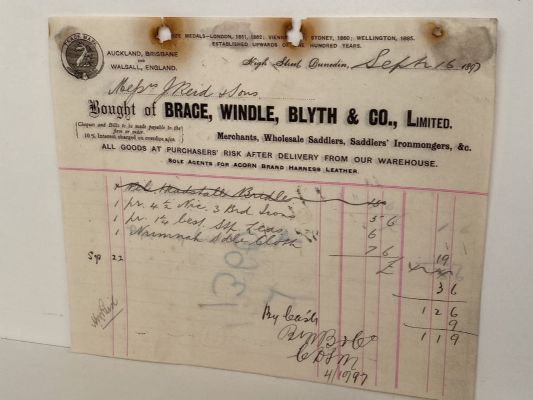 TRADE MARK
PRIZE MEDALS—LONDON, 1851, 1862; VIENNA SYDNEY, 1880; WELLINGTON, 1885.
ESTABLISHED UPWARDS OF ONE HUNDRED YEARS.
AUCKLAND, BRISBANE
AND
WALSALL, ENGLAND.
High Street Dunedin, Sept 16 1897
Messrs J Reid & Sons
Bought of BRACE, WINDLE, BLYTH & CO., LIMITED.
Cheques and Bills to be made payable to the
firm or order.
10% Interest charged on overdue a/cs
Merchants, Wholesale Saddlers, Saddlers' Ironmongers, &c.
ALL GOODS AT PURCHASERS' RISK AFTER DELIVERY FROM OUR WAREHOUSE.
SOLE AGENTS FOR ACORN BRAND HARNESS LEATHER.
Bridle
1 pr. 4½ Nic. 3 Bar Irons 5 6
1 pr. 1¼ best Stp Leas 6
1 Numnah Sdle Cloth 7 6 19
£
Sep 22
3 6
1 2 6
By Cash 9
1 1 9
4/10/97